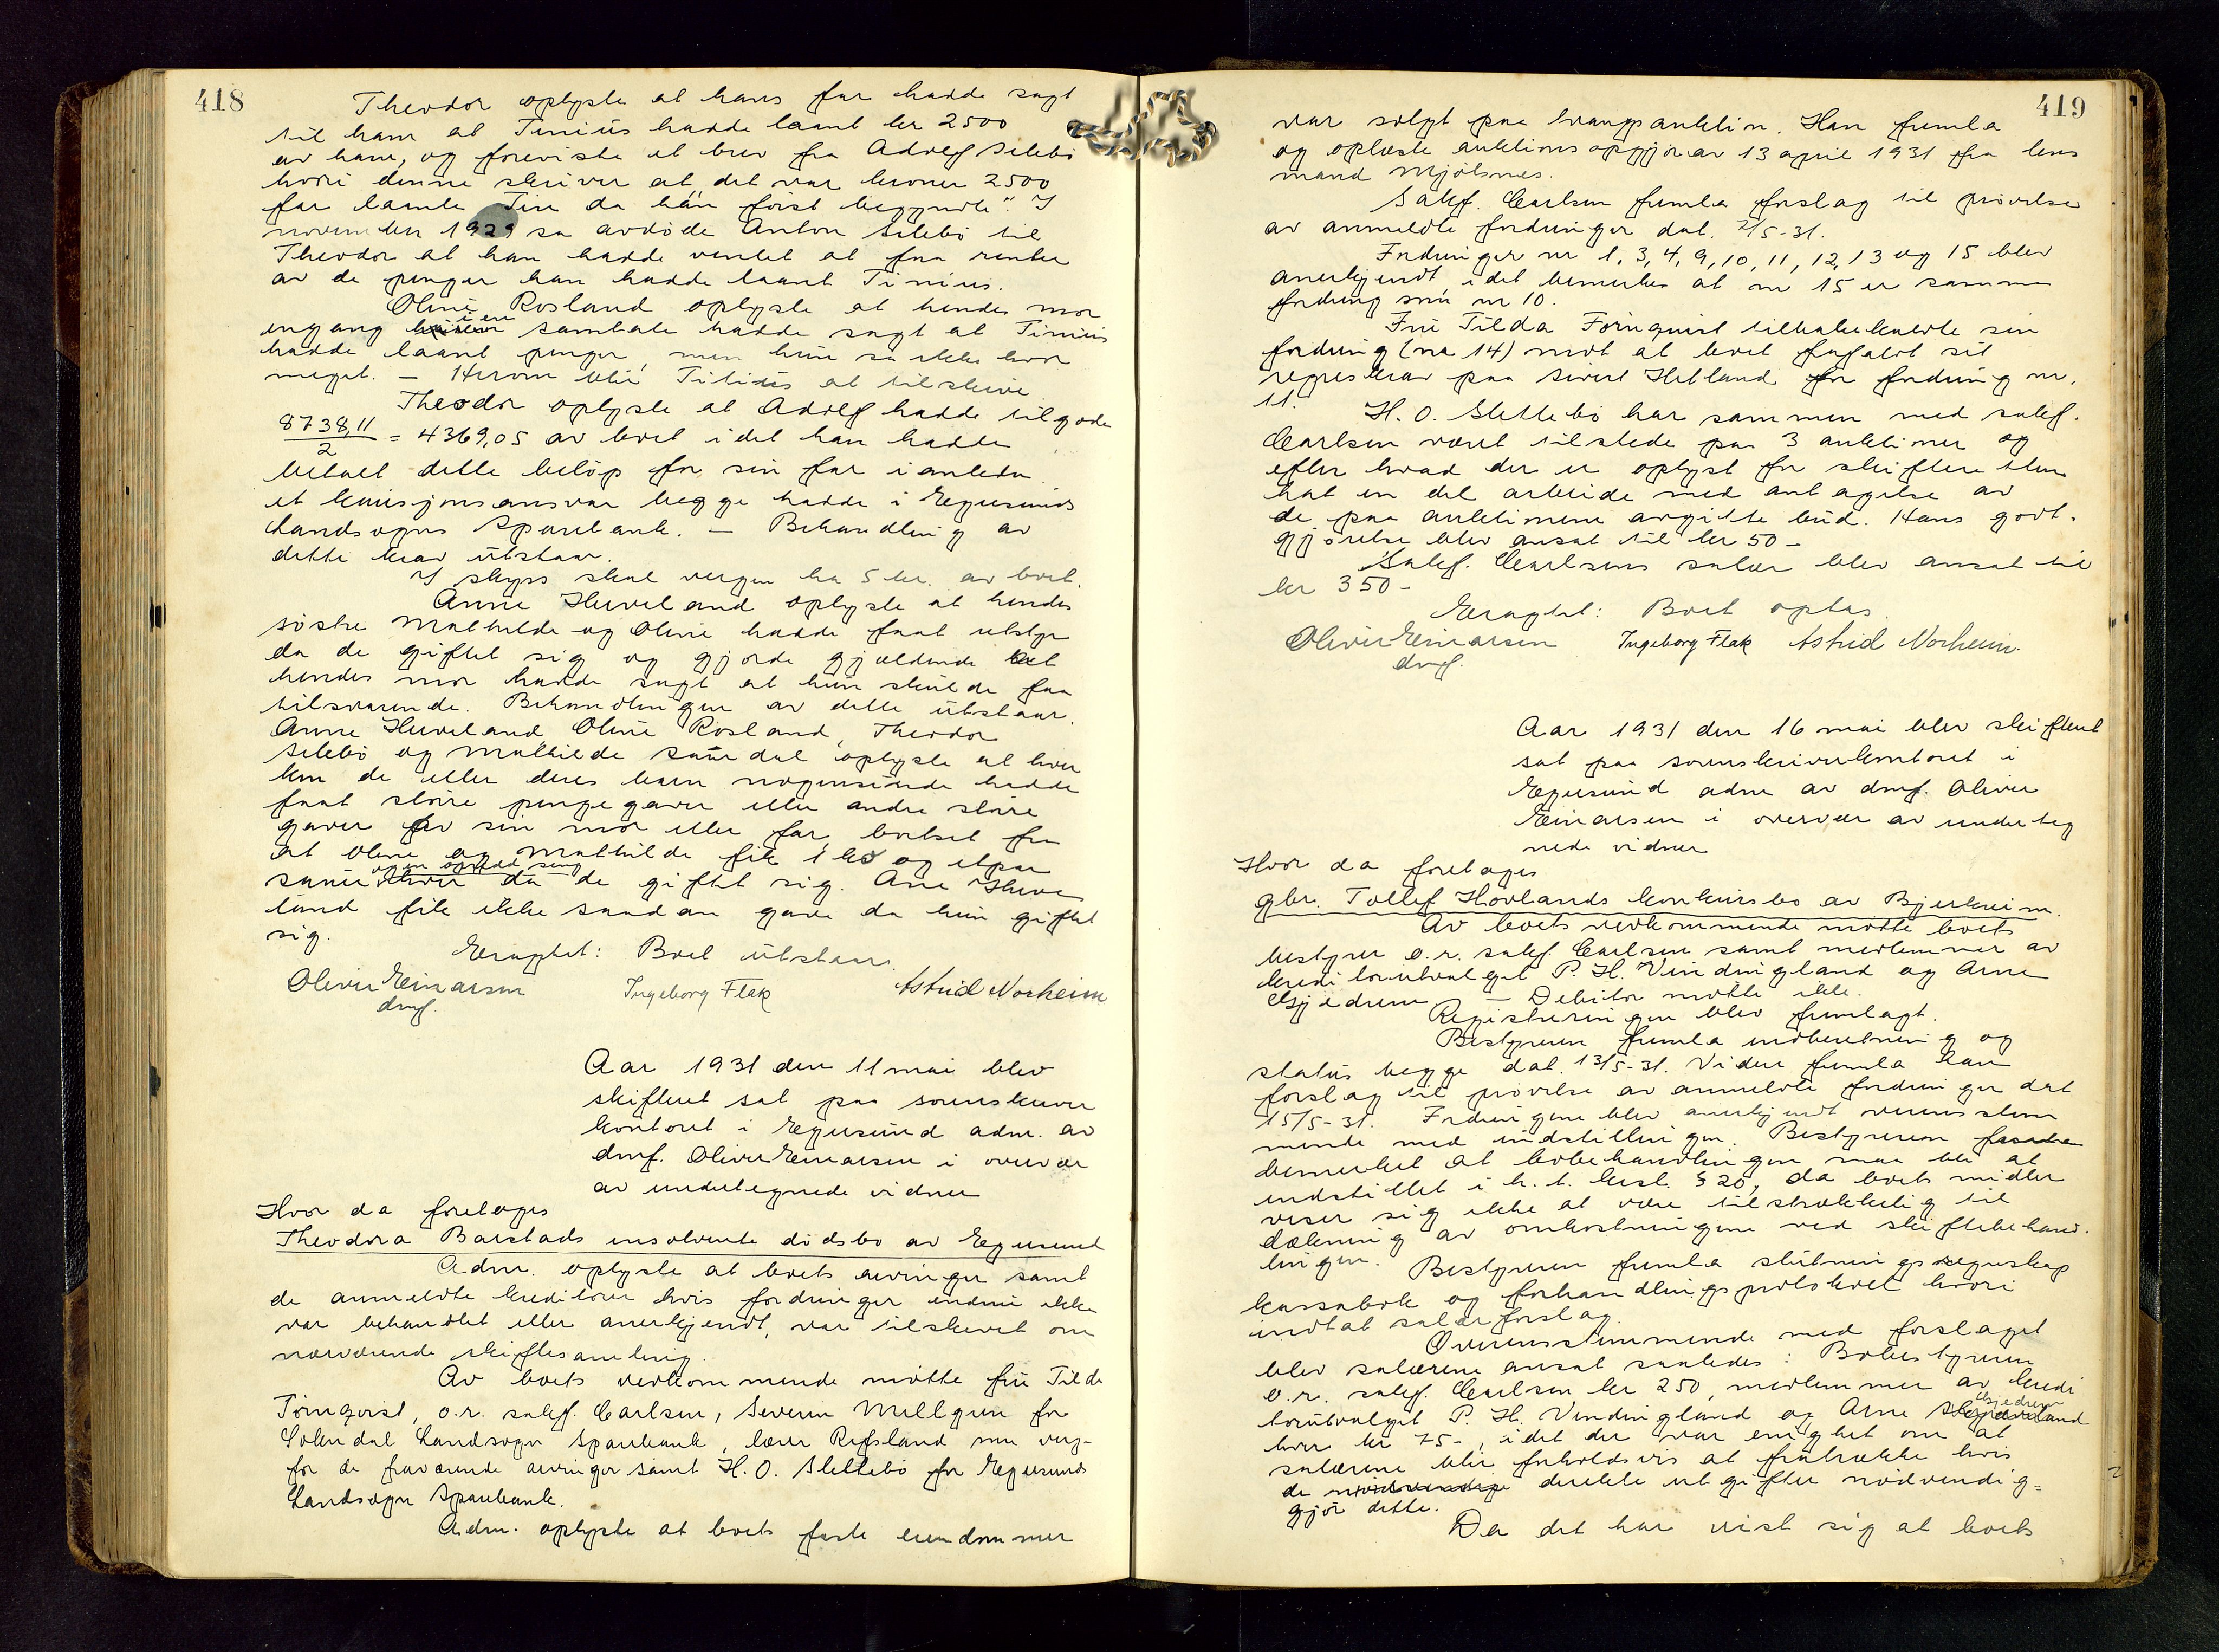 418
Theodor oplyste at hans far hadde sagt
til ham at Tinius hadde laant kr 2500
av ham, og foreviste et brev fra Adolf Slebø
hvori denne skriver at „det var kroner 2500
far laante Tin da han først begyndte". I
november 1929 sa avdøde Anton Slebø til
Theodor at han hadde ventet at faa renter
av de penger han hadde laant Tinius.
Oline Rosland oplyste at hendes mor
engang i en samtale hadde sagt at Tinius
hadde laant penger, men hun sa ikke hvor
meget. — Herom blir Tinius at tilskrive
Theodor oplyste at Adolf hadde tilgode
8738,11/2 = 4369,05 av boet idet han hadde
betalt dette beløp for sin far i anledn.
et kausjonsansvar begge hadde i Egersunds
Landsogns Sparebank. — Behandling av
dette krav utstaar.
I skyss skal vergen ha 5 kr. av boet.
Anne Hæveland oplyste at hendes
søstre Mathilde og Oline hadde faat utstyr
da de giftet sig og gjorde gjældende at
hendes mor hadde sagt at hun skulde faa
tilsvarende. Behandlingen av dette utstaar.
Anne Hæveland, Oline Rosland, Theodor
Slebø og Mathilde Saurdal oplyste at hver
ken de eller deres barn nogensinde hadde
faat større pengegaver eller andre større
gaver av sin mor eller far bortset fra
at Oline og Mathilde fik 1 ko og etpar
sauer og en opredd seng hver da de giftet sig. Ane Hæve
land fik ikke saadan gave da hun giftet
sig.
Eragtet: Boet utstaar.
Oliver Einarsen Ingeborg Flek Astrid Norheim
dmf.
Aar 1931 den 11 mai blev
skifteret sat paa sorenskriver
kontoret i Egersund adm. av
dmf. Oliver Einarsen i overvær
av undertegnede vidner
Hvor da foretages
Theodora Barstads insolvente dødsbo av Egersund
Adm. oplyste at boets arvinger samt
de anmeldte kreditorer hvis fordringer endnu ikke
var behandlet eller anerkjendt, var tilskrevet om
nærværende skiftesamling.
Av boets vedkommende møtte fru Tilda
Törnqvist, o.r. sakf. Carlsen, Severin Mellgren for
Sokndal Landsogns Sparebank, lærer Refsland som verge
for de fraværende arvinger samt H. O. Slettebø for Egersunds
Landsogns Sparebank.
Adm. oplyste at boets faste eiendommer
419
var solgt paa tvangsauktion. Han fremla
og oplæste auktionsopgjør av 13 april 1931 fra lens
mand Mjølsnes.
Sakf. Carlsen fremla forslag til prøvelse
av anmeldte fordringer dat. 2/5-31.
Fordringer nr 1, 3, 4, 9, 10, 11, 12, 13 og 15 blev
anerkjendt, idet bemerkes at nr 15 er samme
fordring som nr 10.
Fru Tilda Törnquist tilbakekaldte sin
fordring (nr 14) mot at boet frafaldt sit
regresskrav paa Sivert Hetland for fordring nr.
11.
H. O. Slettebø har sammen med sakf.
Carlsen været tilstede paa 3 auktioner og
efter hvad der er oplyst for skifteretten
hat en del arbeide med antagelse av
de paa auktionene avgitte bud. Hans godt-
gjørelse blev ansat til kr 50-
Sakf. Carlsens salær blev ansat til
kr 350-
Eragtet: Boet optas.
Oliver Einarsen Ingeborg Flek Astrid Norheim.
dmf.
Aar 1931 den 16 mai blev skifteret
sat paa sorenskriverkontoret i
Egersund adm av dmf. Oliver
Einarsen i overvær av underteg
nede vidner
Hvor da foretages
gbr. Tollef Hovlands konkursbo av Bjerkreim.
Av boets vedkommende møtte boets
bestyrer o.r. sakf. Carlsen samt medlemmer av
kreditorutvalget P. H. Vindingland og Arne
Gjedrem — Debitor møtte ikke.
Registreringen blev fremlagt.
Bestyreren fremla indberetning og
status begge dat. 13/5-31. Videre fremla han
forslag til prøvelse av anmeldte fordringer dat
15/5-31. Fordringene blev anerkjendt overensstem
mende med indstillingen. Bestyreren
bemerket at bobehandlingen maa bli at
indstillet i h.t. kksl. § 20, da boets midler
viser sig ikke at være tilstrækkelig til
dækning av omkostningene ved skiftebehand-
lingen. Bestyreren fremla slutningsregnskap
kassabok og forhandlingsprotokoll hvori
indtat salærforslag.
Overensstemmende med forslaget
blev salærene ansat saaledes: Bobestyreren
o.r. sakf. Carlsen kr 250, medlemmer av kredi
torutvalget P. H. Vindingland og Arne Gjedrem
hver kr 75-, idet der var enighet om at
salærene blir forholdsvis at fratrække hvis
de nødvendige direkte utgifter nødvendig-
gjør dette.
Da det har vist sig at boets